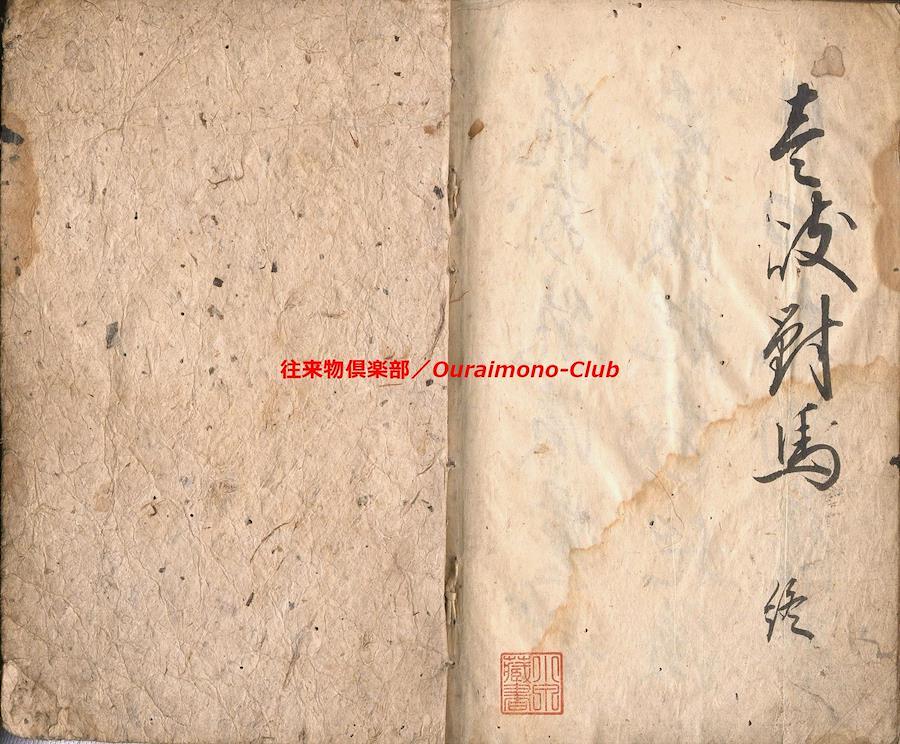 壱岐對馬
終
往来物倶楽部／Ouraimono-Club
小泉
藏書